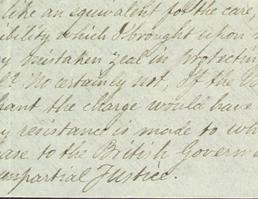 like an equivalent for the care,
ibility which I brought upon
y mistaken zeal in protectin
? No certainly not, If the
hant the charge would have
y resistance is made to wh
ase to the British Governm
impartial Justice.